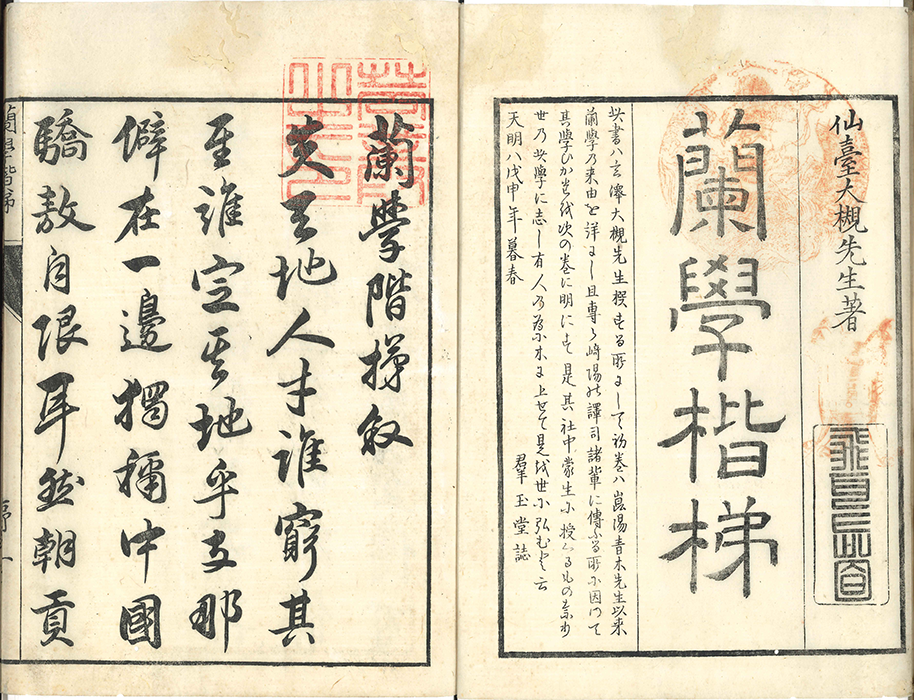 仙臺大槻先生著
蘭學楷梯
此書ハ玄澤大槻先生撰する所にして初卷ハ崑陽青木先生以来
蘭學乃来由を詳にし且専ら崎陽の譯司諸輩に傳ふる所に因つて
其學ひかたを次の卷に明にす是其社中蒙生に授くるものなり
世乃此學に志し有人の為に木に上せて是を世に弘むと云
天明八戊申年暮春
羣玉堂誌
蘭學階梯叙
夫天地人才誰窮其
至誰定其地乎支那
僻在一邊獨稱中國
驕敖自限耳然朝貢
蘭學階梯
序 一